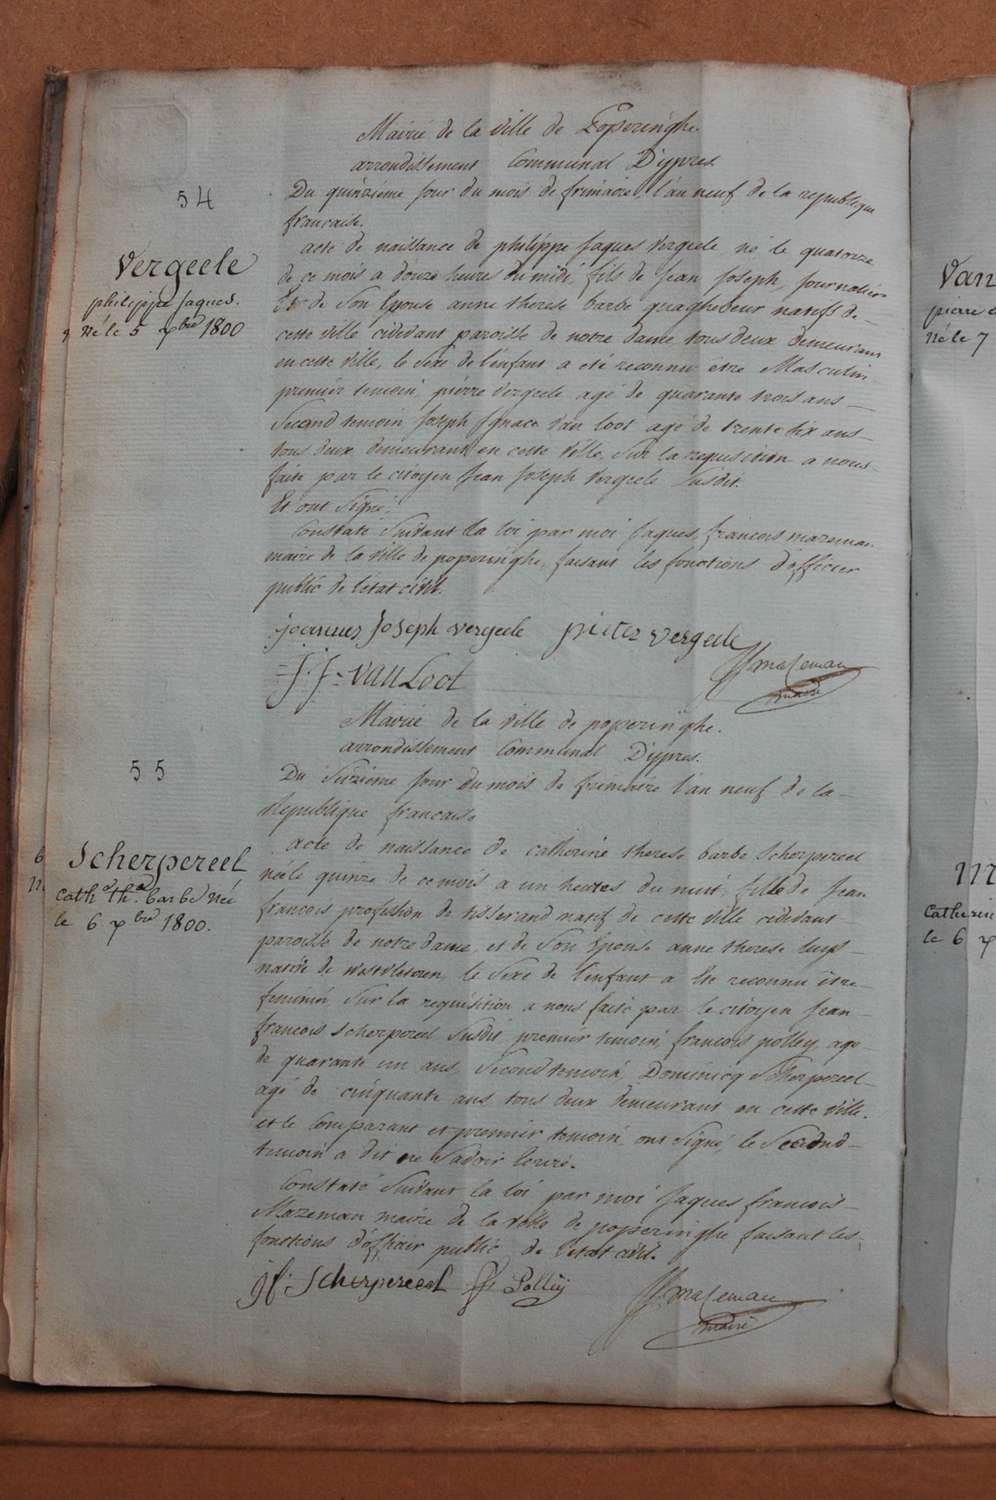 Mairie de la ville de Poperinghe
arrondissement Communal D'ypres
54
Du quinzieme jour du mois de frimaire l'an neuf de la republique
francaise.
Vergeele
philippe jaques.
né le 5 xbre 1800
acte de naissance de philippe jaques Vergeele né le quatorze
de ce mois a douze heures du midi, fils de jean joseph, journalier
Et de Son Epouse anne therese barbe quaghebeur natifs de
cette ville cidevant paroisse de notre dame tous deux demeurans
en cette ville, le sexe de l'enfant a été reconnu être Masculin,
premier temoin, pierre Vergeele agé de quarante trois ans
Second temoin Joseph Ignace Van loot agé de trente six ans
tous deux demeurant en cette ville, sur la requisition a nous
faite par le citoyen jean joseph Vergeele susdit.
Et ont signé.
Constaté Suivant la loi par moi jaques francois mazeman
maire de la ville de poperinghe, faisant les fonctions d'officier
public de l'etat civil.
joannes joseph vergeele pieter vergeele
J: J: VAN Loot
JJ mazeman
maire
Mairie de la ville de poperinghe.
arrondissement Communal D'ypres.
55
Du Seizieme jour du mois de frimaire l'an neuf de la
Republique francaise
Scherpereel
Cath.a th.a barbe née
le 6 xbre 1800.
acte de naissance de catherine therese barbe Scherpereel
née le quinze de ce mois a un heures du nuit, fille de jean
francois profession de tisserand natif de cette ville cidevant
paroisse de notre dame, et de Son Epouse anne therese
native de westvleteren, le sexe de l'enfant a été reconnu être
feminin, sur la requisition a nous faite par le citoyen jean
francois Scherpereel susdit, premier temoin, francois polley, agé
de quarante un ans, Second temoin Dominicq Scherpereel
agé de cinquante ans tous deux demeurant en cette ville.
et le Comparant et premier temoin, ont signé, le Second
temoin a dit ne savoir ecrire.
Constaté Suivant la loi par moi jaques francois
Mazeman maire de la ville de poperinghe faisant les
fonctions d'officier public de l'etat civil.
jf. Scherpereel Polley
JJ mazeman
maire
Van
pierre
né le 7
M
Catherin
le 6 x